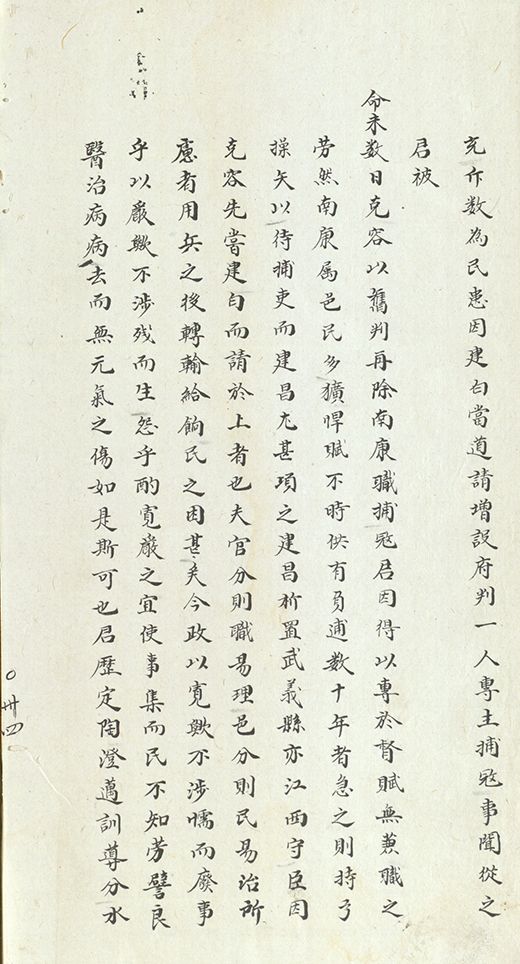 充斥数為民患因建白當道請增設府判一人專主捕冦事聞從之
君被
命未数日克容以舊判再除南康職捕冦君因得以專於督賦無兼職之
劳然南康属邑民多獷悍賦不時供有負逋数十年者急之則持弓
操矢以待捕吏而建昌尤甚項之建昌析置武義縣亦江西守臣因
克容先嘗建白而請於上者也夫官分則職易理邑分則民易治所
慮者用兵之後轉輸給餉民之困甚矣今政以寛歟不涉懦而廢事
乎以嚴歟不涉残而生怨乎酌寛嚴之宜使事集而民不知劳譬良
醫治病病去而無元氣之傷如是斯可也君歴定陶澄邁訓導分水
〇卅四